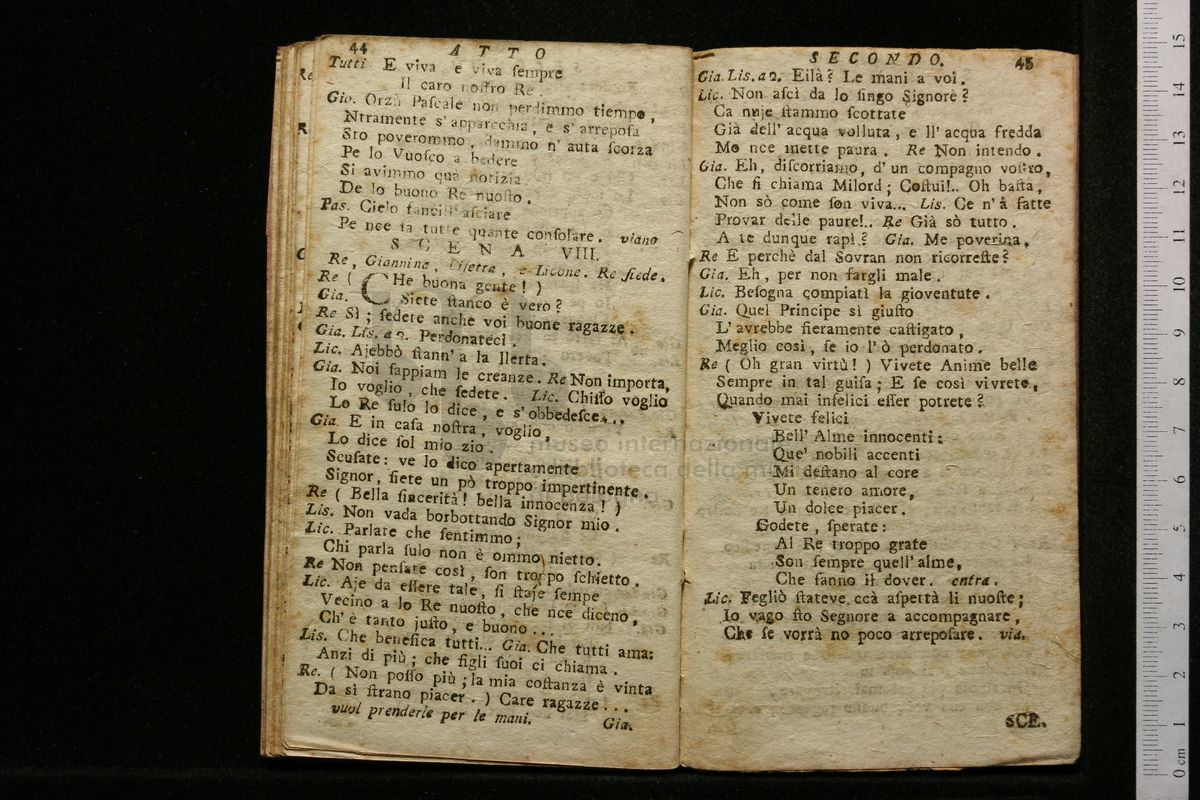 44
ATTO
Tutti E viva e viva ſempre
Il caro noſtro Re.
Gio. Orzù Paſcale non perdimmo tiempo,
Ntramente s' apparecchia, e s' arrepoſa
Sto poverommo, dammo n' auta ſcorza
Pe lo Vuoſco a bedere
Si avimmo quà notizia
De lo buono Re nuoſto.
Pas. Cielo fancill' aſciare
Pe nce fa tutte quante conſolare. viano
SCENA VIII.
Re, Giannina, Liſetta, e Licone. Re ſiede.
Re ( CHe buona gente! )
Gia. Siete ſtanco è vero?
Re Sì; ſedete anche voi buone ragazze.
Gia. Lis. a 2. Perdonateci.
Lic. Ajebbò ſtann' a la llerta.
Gia. Noi ſappiam le creanze. Re Non importa,
Io voglio, che ſedete. Lic. Chiſſo voglio
Lo Re ſulo lo dice, e s' obbedeſce....
Gia. E in caſa noſtra, voglio
Lo dice ſol mio zio.
Scuſate: ve lo dico apertamente
Signor, ſiete un pò troppo impertinente.
Re ( Bella ſincerità! bella innocenza! )
Lis. Non vada borbottando Signor mio.
Lic. Parlate che ſentimmo;
Chi parla ſulo non è ommo nietto.
Re Non penſate così, ſon troppo ſchietto.
Lic. Aje da eſſere tale, ſi ſtaje ſempe
Vecino a lo Re nuoſto, che nce diceno,
Ch' è tanto juſto, e buono...
Lis. Che beneſica tutti... Gia. Che tutti ama:
Anzi di più; che figli ſuoi ci chiama.
Re. ( Non poſſo più; la mia coſtanza è vinta
Da sì ſtrano piacer. ) Care ragazze...
vuol prenderle per le mani.
Gia.
SECONDO.
45
Gia. Lis. a 2. Eilà? Le mani a voi.
Lic. Non aſci da lo ſingo Signore?
Ca nuje ſtammo ſcottate
Già dell' acqua volluta, e ll' acqua fredda
Mo nce mette paura. Re Non intendo.
Gia. Eh, diſcorriamo, d' un compagno voſtro,
Che ſi chiama Milord; Coſtui!.. Oh baſta,
Non sò come ſon viva... Lis. Ce n' à fatte
Provar delle paure!.. Re Già sò tutto.
A te dunque rapì? Gia. Me poverina,
Re E perchè dal Sovran non ricorreſte?
Gia. Eh, per non fargli male.
Lic. Beſogna compiatì la gioventute.
Gia. Quel Principe sì giuſto
L' avrebbe fieramente caſtigato,
Meglio così, ſe io l' ò perdonato.
Re ( Oh gran virtù! ) Vivete Anime belle
Sempre in tal guiſa; E ſe così vivrete,
Quando mai infelici eſſer potrete?
Vivete felici
Bell' Alme innocenti:
Que' nobili accenti
Mi deſtano al core
Un tenero amore,
Un dolce piacer.
Godete, ſperate:
Al Re troppo grate
Son ſempre quell' alme,
Che fanno il dover. entra.
Lic. Fegliò ſtateve ccà aſpettà li nuoſte;
Io vago ſto Segnore a accompagnare,
Che ſe vorrà no poco arrepoſare. via.
SCE.
museo internazionale
biblioteca della musica